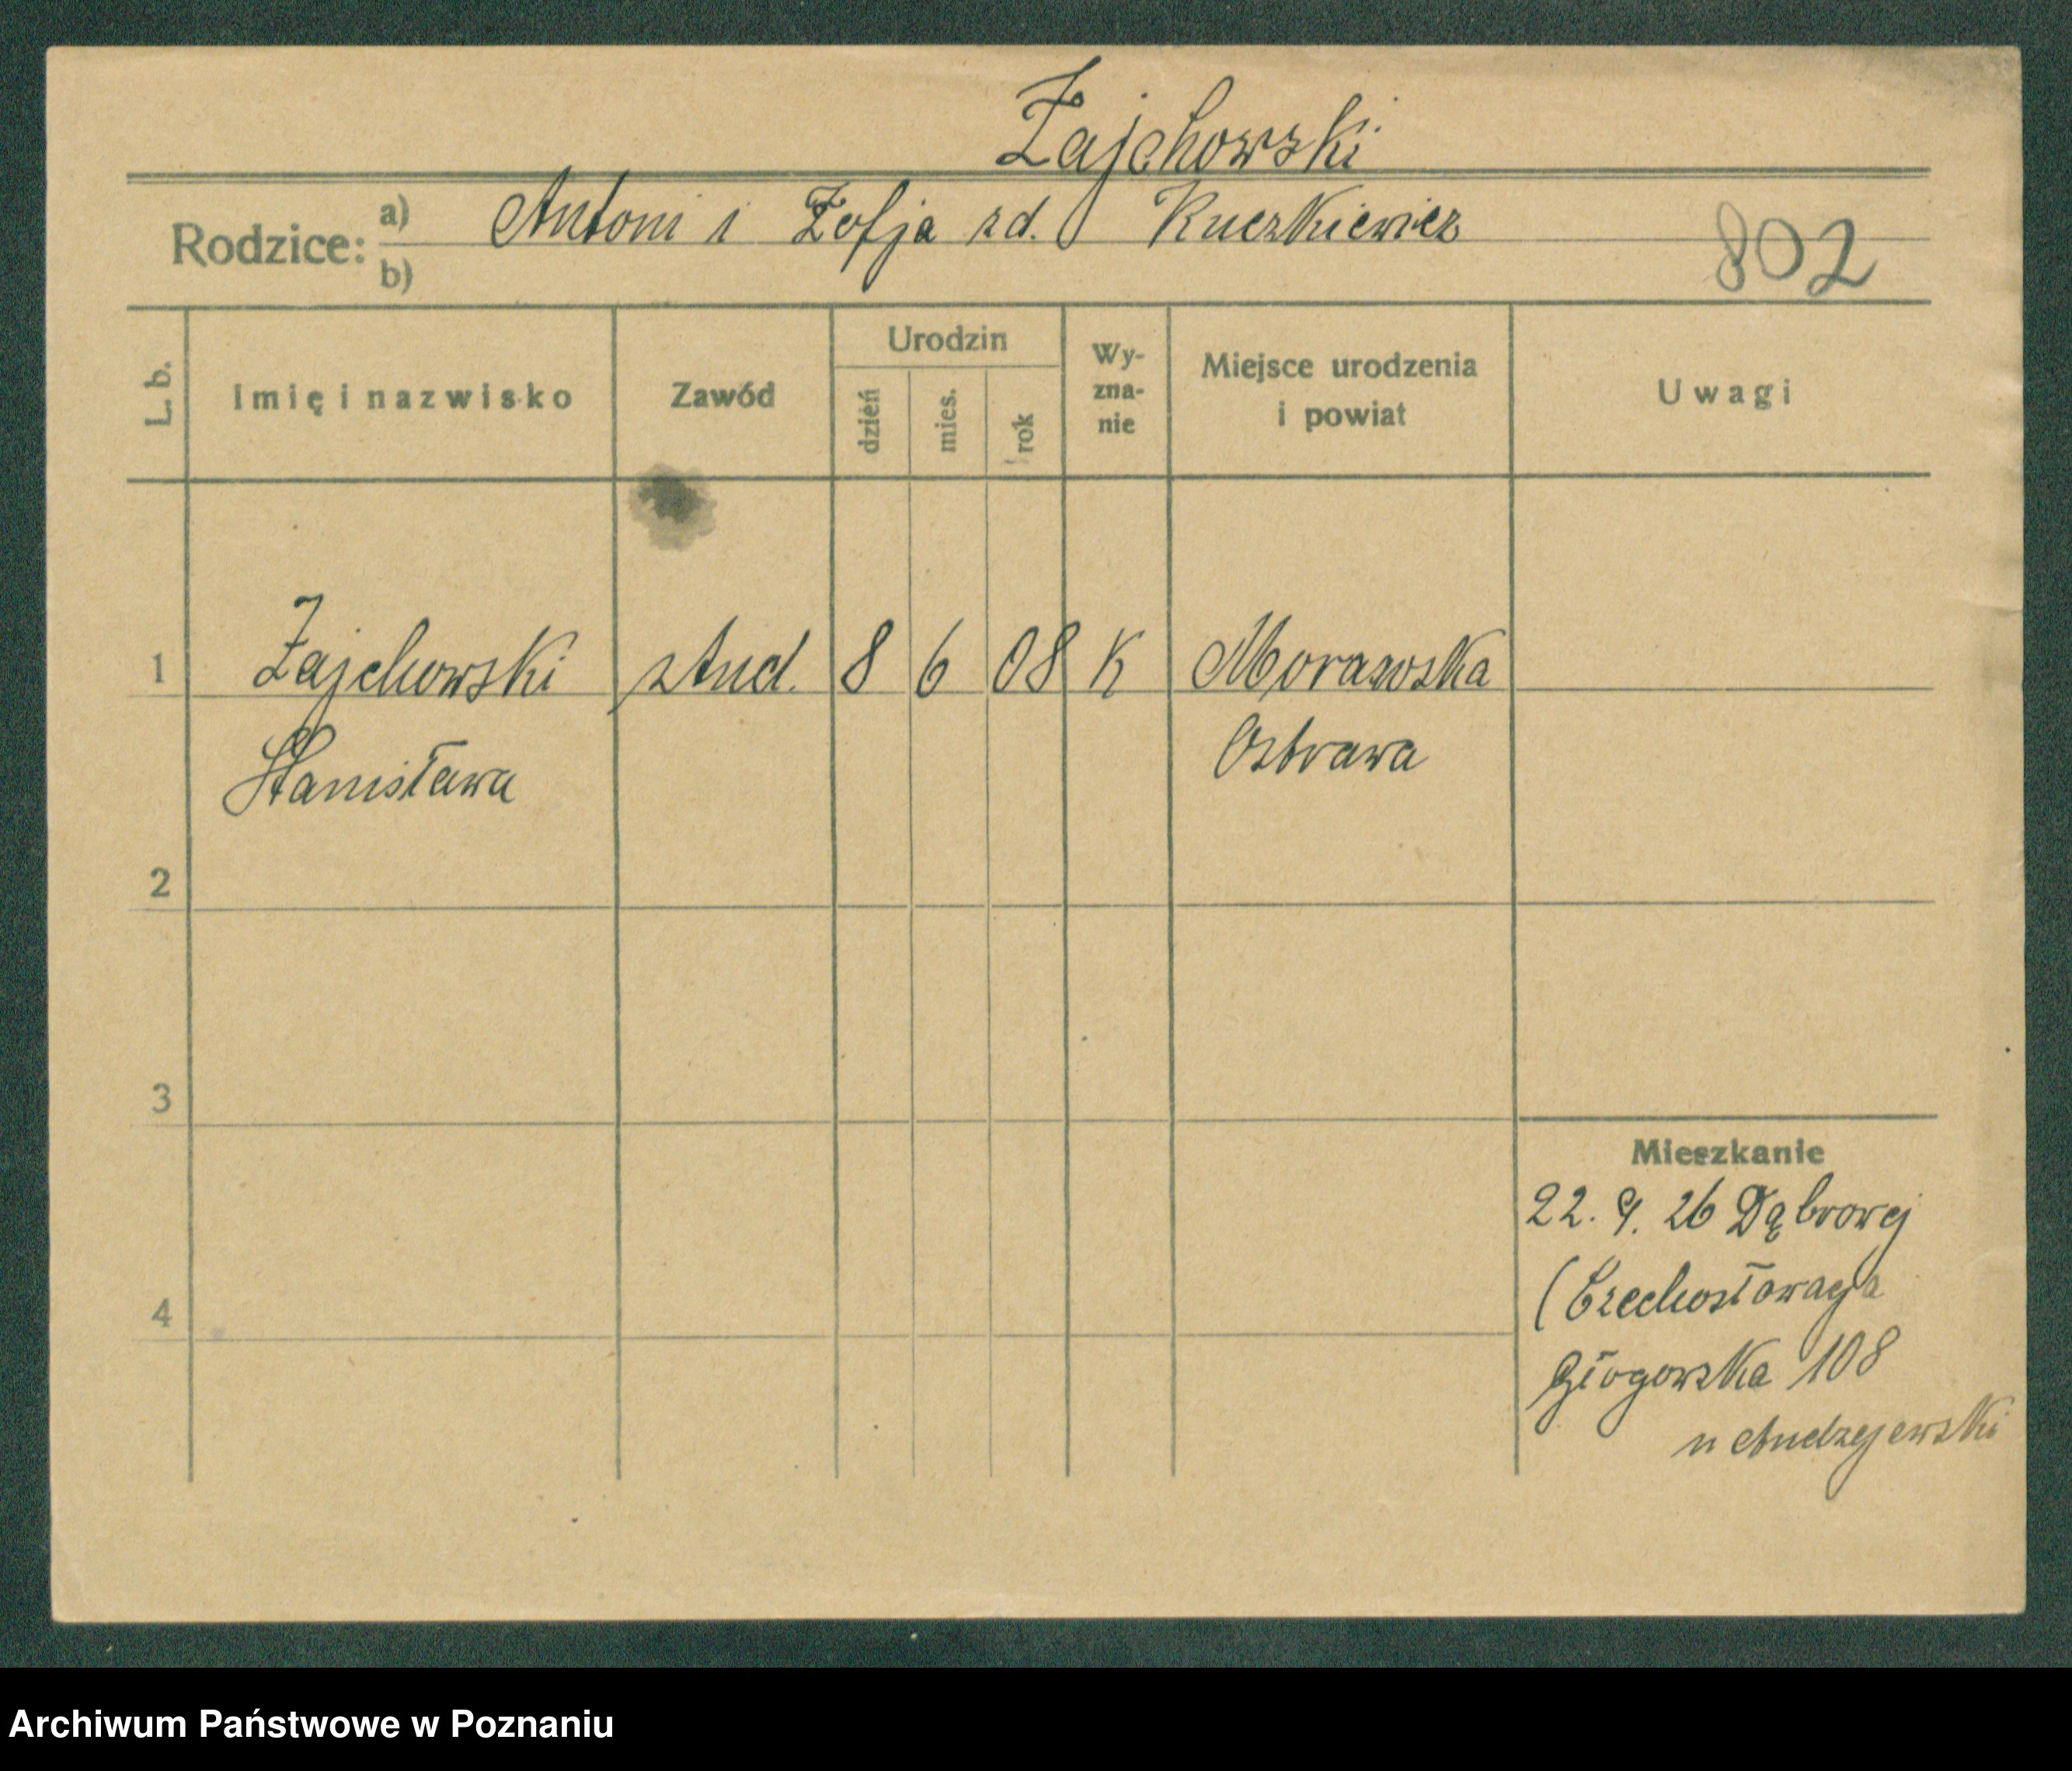 Zajchowski
Rodzice: a) Antoni i Zofja zd. Kuczkiewicz
b)
802
L. b.
Imię i nazwisko
Zawód
Urodzin
dzień
mies.
rok
Wy-
zna-
nie
Miejsce urodzenia
i powiat
Uwagi
1 Zajchowski stud. 8 6 08 K Morawska
Stanisława Ostrawa
2
3
4
Mieszkanie
22. 9. 26 Dąbrowej
(Czechosłowacja
Głogowska 108
u Andrzejewski
Archiwum Państwowe w Poznaniu